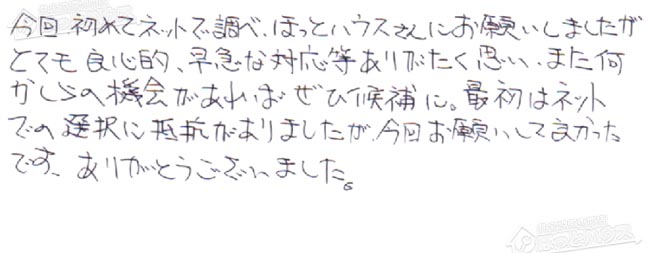 今回 初めてネットで調べ、ほっとハウスさんにお願いしましたが
とても良心的、早急な対応等ありがたく思い、また何
かしらの機会があればぜひ候補に。最初はネット
での選択に抵抗がありましたが、今回お願いして良かった
です。ありがとうございました。
ほっとハウス